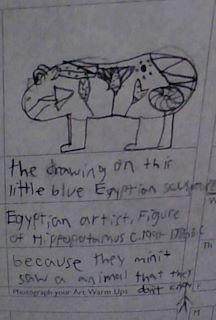 the drawing on this
little blue Egyptian
Egyptian artist, Figure
of Hippopotamus C.
because they minit
saw a animal that they
Photograph your Art Warm Ups don't know